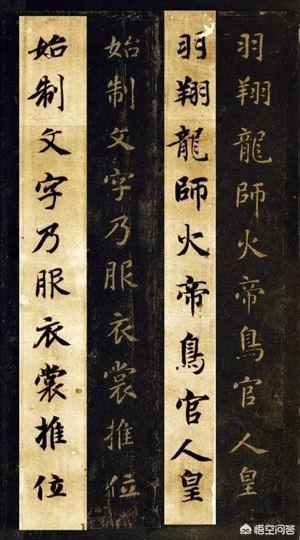 羽翔龍師火帝鳥官人皇
羽翔龍師火帝鳥官人皇
始制文字乃服衣裳推位
始制文字乃服衣裳推位
悟空问答